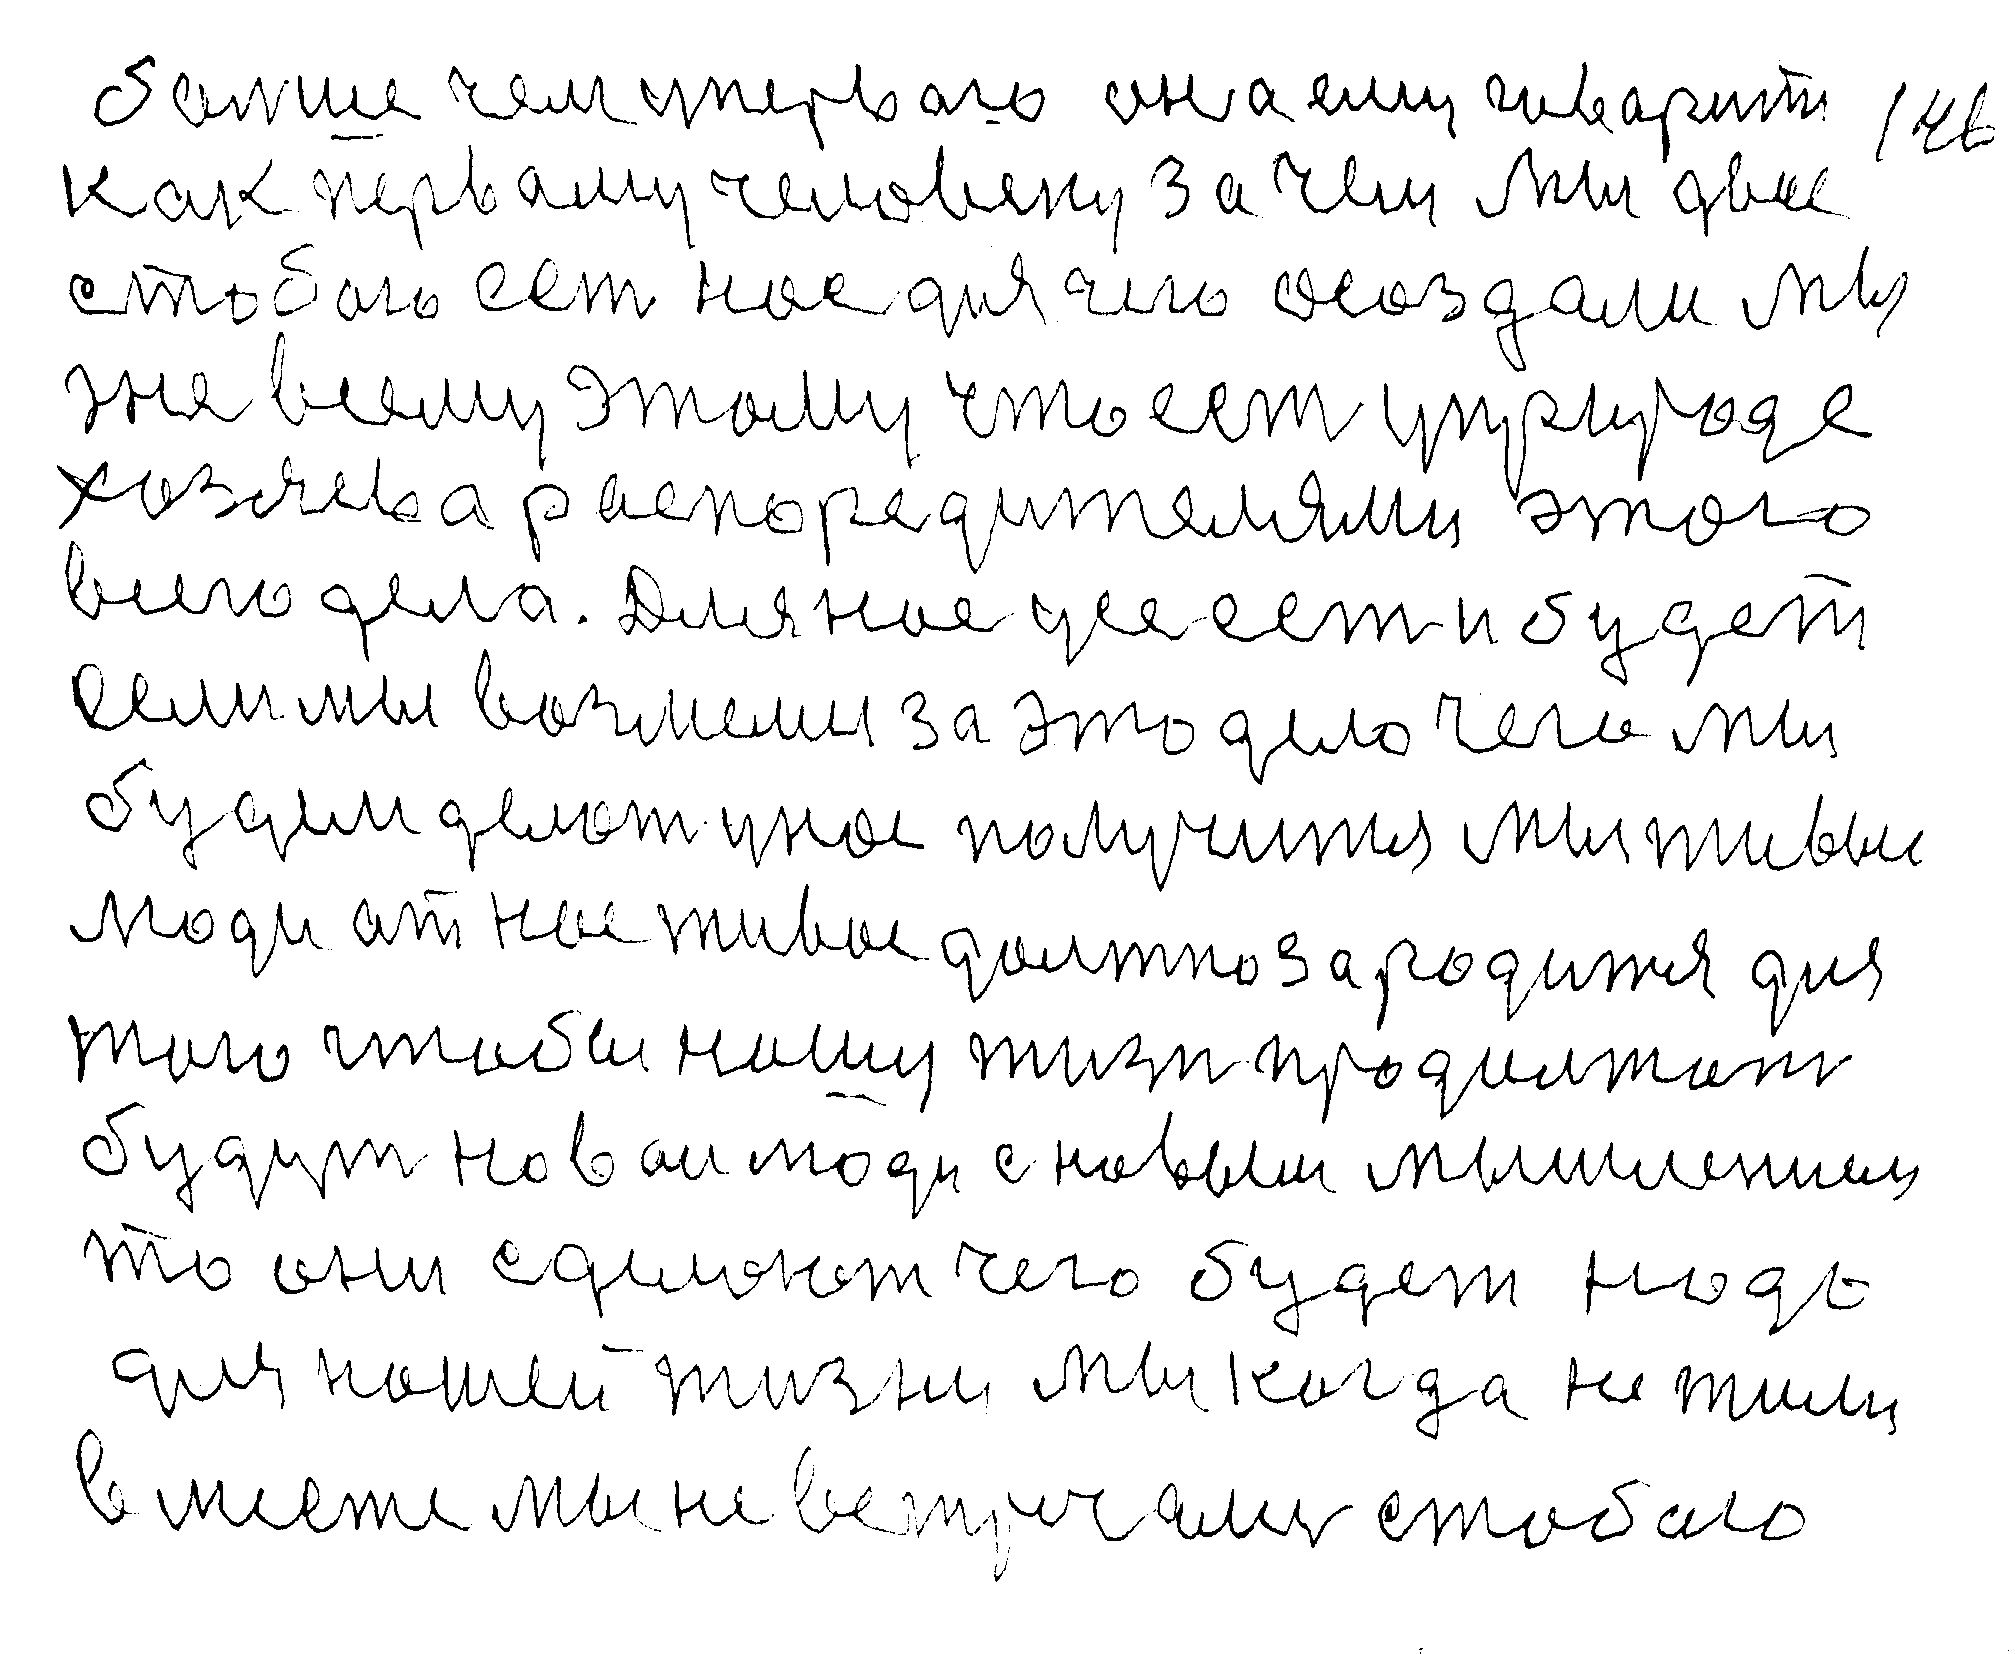 болше чем упервого она ему говарит 146
как первому человеку зачем мы двое
стобого ест нос для чего осоздали мы
же всему этому что ест уприроде
хозяева распоредителями этого
всего дела. Для нос усе ест и будет
если мы возмемы за это дело чего мы
будем делот унос получится мы живыи
люди от нос живое должно зародится для
того чтобы ношу жизн продолжот
будут новои люди с новым мышлением
то они сделоют чего будет нодо
для ношей жизни мы когда не жили
вместе мы не встричялис стобого